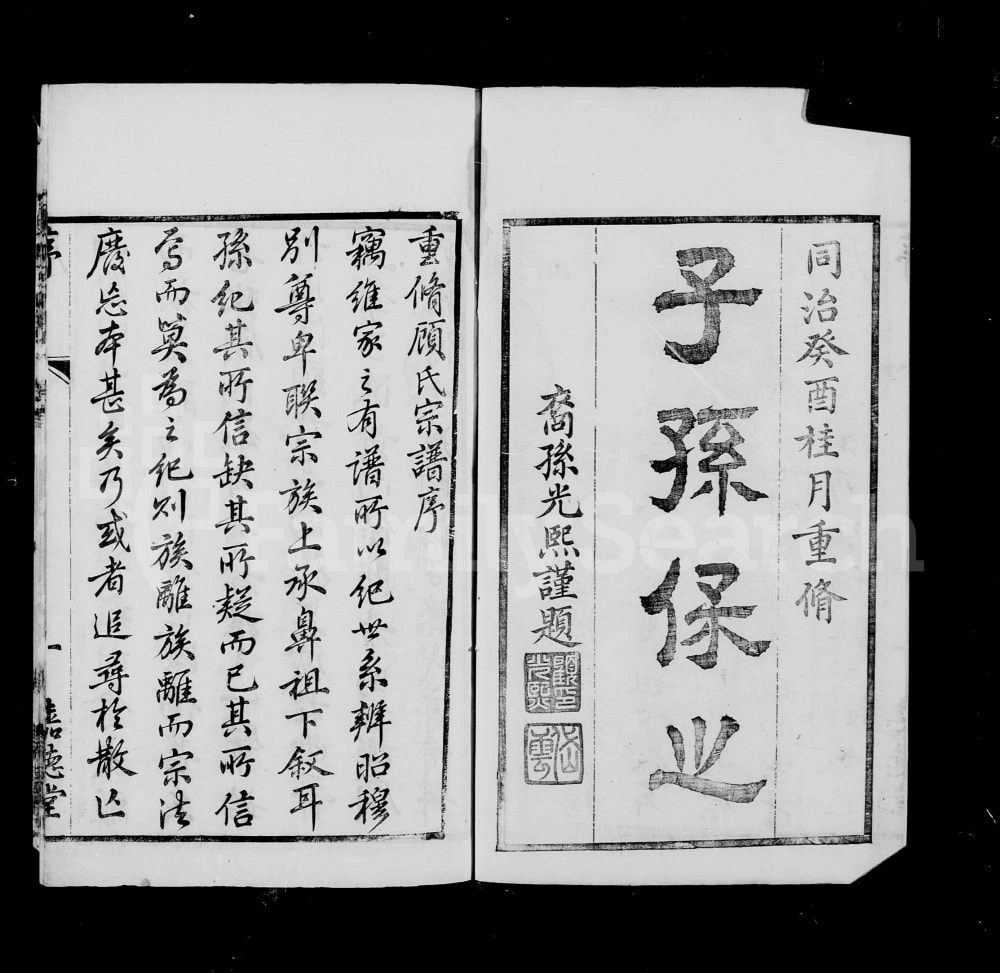 同治癸酉桂月重脩
子孫保之
裔孫光熙謹題
顧印光熙
重脩顧氏宗譜序
竊維家之有譜所以紀世系辨昭穆
別尊卑聯宗族上承鼻祖下叙耳
孫紀其所信缺其所疑而已其所信
焉而莫為之紀則族離族離而宗法
廢忘本甚矣乃或者追尋於散亡
序
一
嘉德堂
FamilySearch